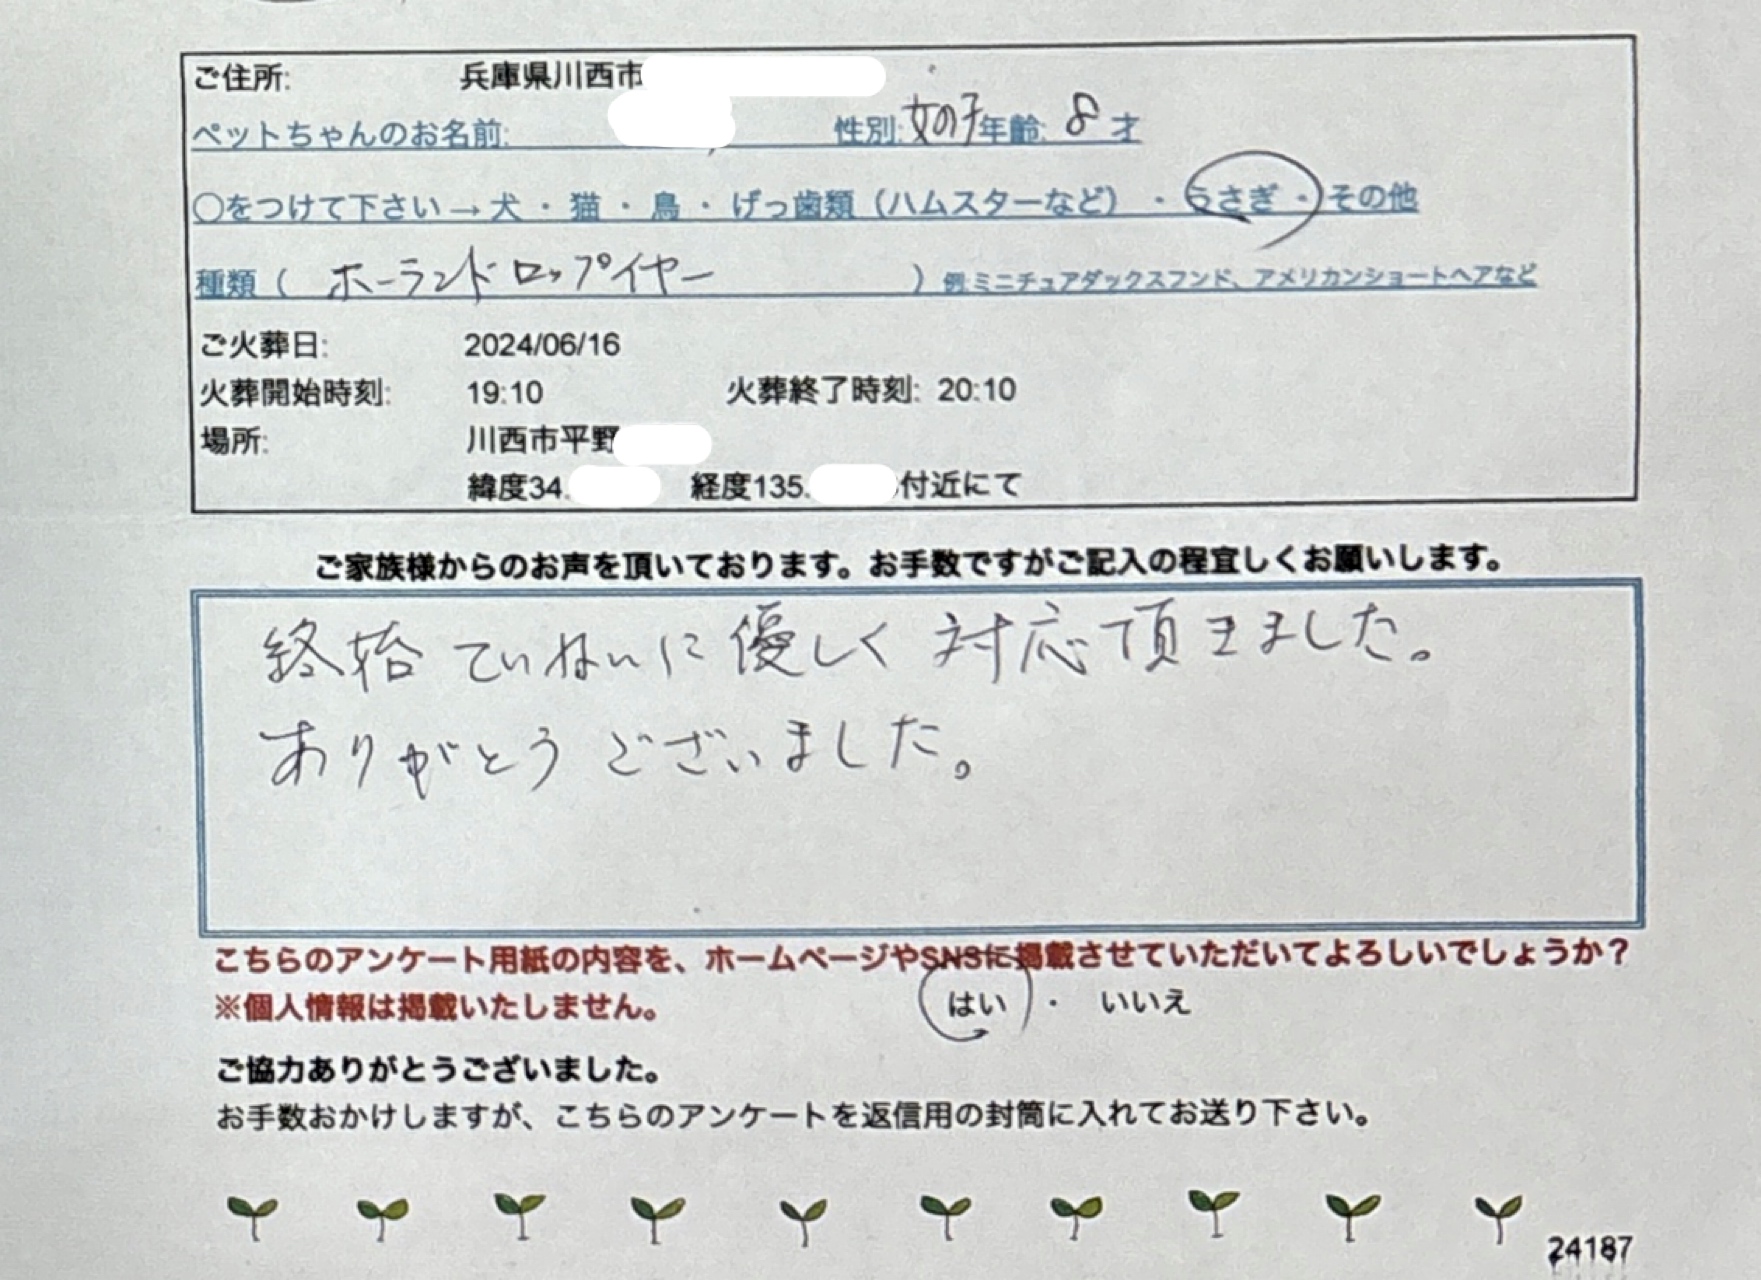 ご住所: 兵庫県川西市
ペットちゃんのお名前: 性別:女の子年齢: 8才
○をつけて下さい→犬・猫・鳥・げっ歯類（ハムスターなど）・うさぎ・その他
種類（ ホーランドロップイヤー ）例:ミニチュアダックスフンド、アメリカンショートヘアなど
ご火葬日: 2024/06/16
火葬開始時刻: 19:10 火葬終了時刻: 20:10
場所: 川西市平野
緯度34. 経度135. 付近にて
ご家族様からのお声を頂いております。お手数ですがご記入の程宜しくお願いします。
終始ていねいに優しく対応頂きました。
ありがとうございました。
こちらのアンケート用紙の内容を、ホームページやSNSに掲載させていただいてよろしいでしょうか？
※個人情報は掲載いたしません。 はい ・ いいえ
ご協力ありがとうございました。
お手数おかけしますが、こちらのアンケートを返信用の封筒に入れてお送り下さい。
24187